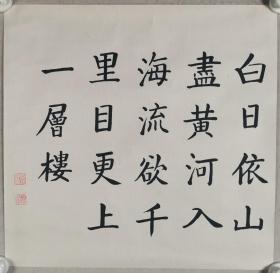 白日依山
盡黄河入
海流欲千
里目更上
一層樓